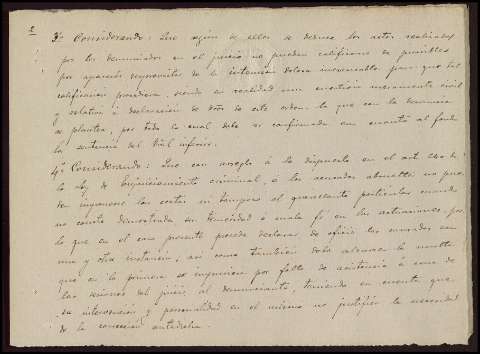 2
3º Considerando: Que según de ellos se deduce los actos realizados
por los denunciados en el juicio no pueden calificarse de punibles
por aparecer desprovistos de la intención dolosa indispensable para que tal
calificación procediera, siendo en realidad una cuestión meramente civil
y relativa á declaración de dros de este orden lo que con la denuncia
se plantea, por todo lo cual debe ser confirmada en cuanto al fondo
la sentencia del Tbnal inferior.
4º Considerando: Que con arreglo á lo dispuesto en el art. 240 de
la ley de Enjuiciamiento criminal, á los acusados absueltos no pue-
den imponerse las costas ni tampoco al querellante particular cuando
no conste demostrada su temeridad ó mala fé en las actuaciones, por
lo que en el caso presente procede declarar de oficio las causadas en
una y otra instancia, así como también debe alzarse la multa
que en la primera se impusiera por falta de asistencia á una de
las sesiones del juicio al denunciante, teniendo en cuenta que
su intervención y personalidad en el mismo no justifica la necesidad
de la sanción antedicha.